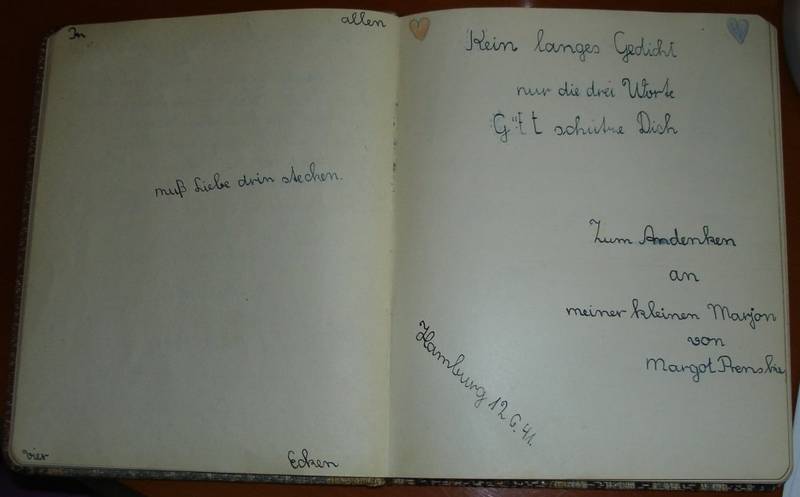 In
allen
muß Liebe drin stechen.
vier
Ecken
Kein langes Gedicht
nur die drei Worte
G"tt schütze Dich
Zum Andenken
an
meiner kleinen Marjon
von
Margot Prenski
Hamburg 12.6.41.